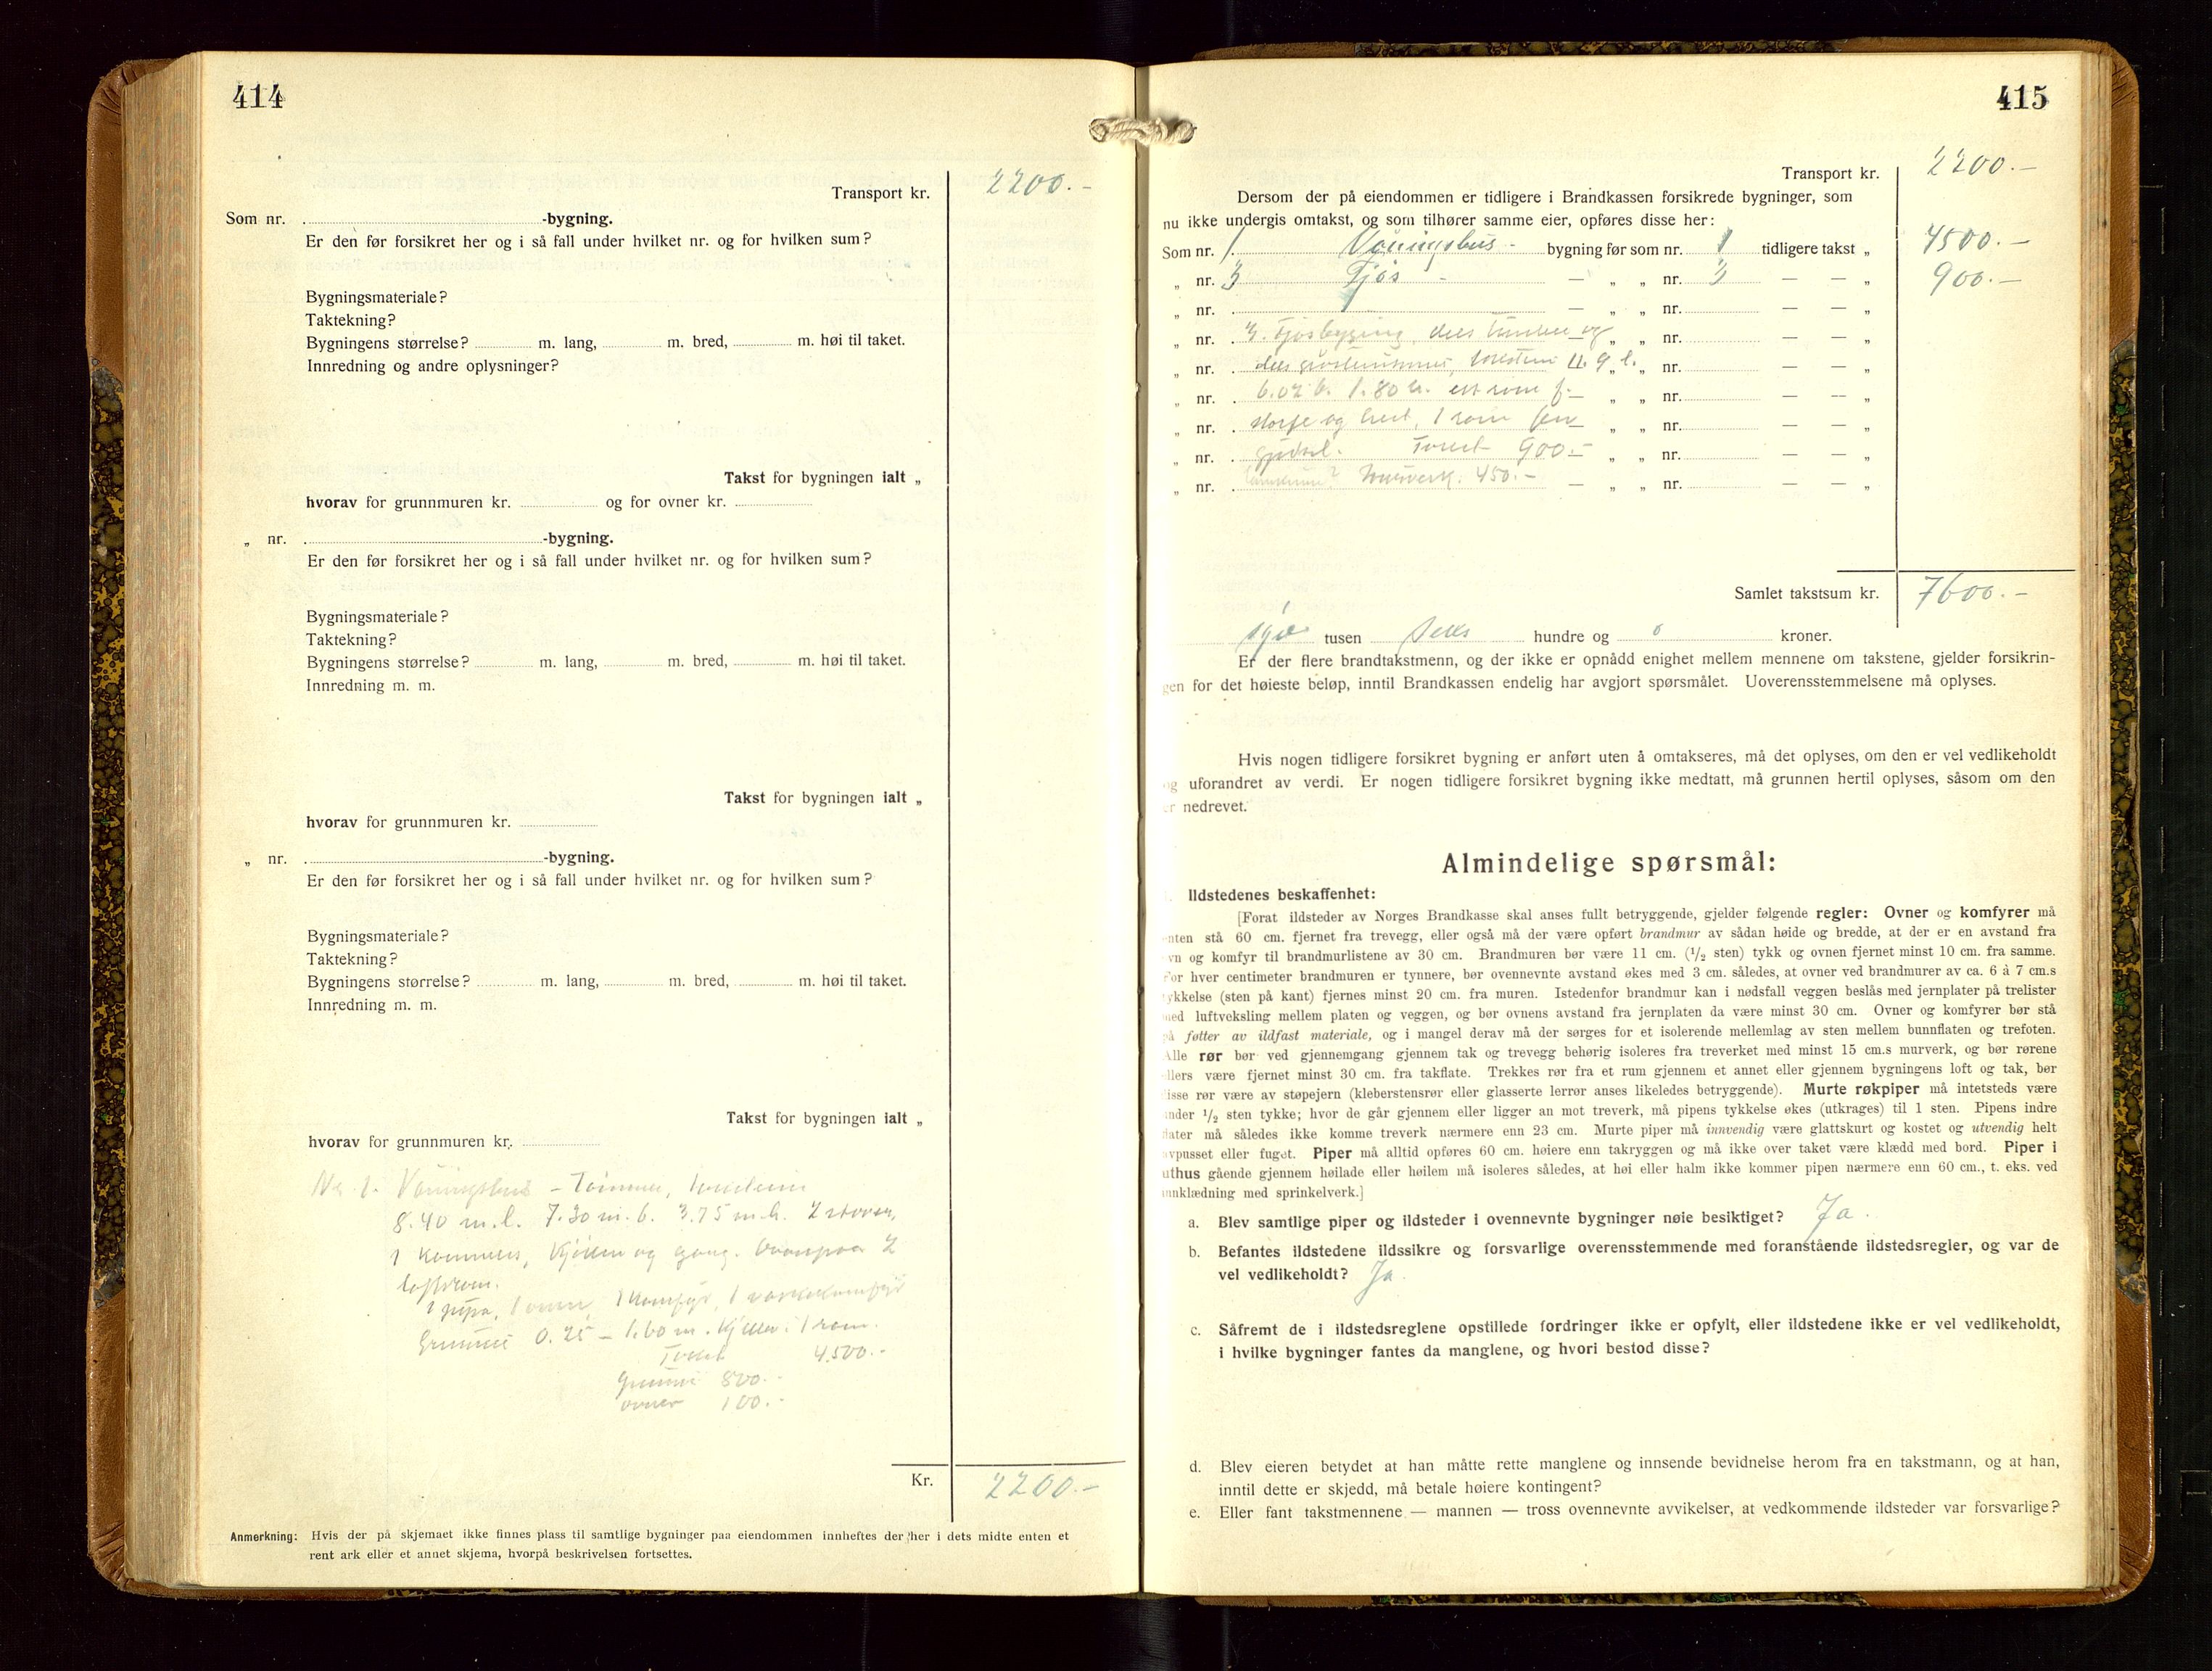 414
Transport kr. 2200.-
Som nr. -bygning.
Er den før forsikret her og i så fall under hvilket nr. og for hvilken sum?
Bygningsmateriale?
Taktekning?
Bygningens størrelse? m. lang, m. bred, m. høi til taket.
Innredning og andre oplysninger?
Takst for bygningen ialt „
hvorav for grunnmuren kr. og for ovner kr.
„ nr. -bygning.
Er den før forsikret her og i så fall under hvilket nr. og for hvilken sum?
Bygningsmateriale?
Taktekning?
Bygningens størrelse? m. lang, m. bred, m. høi til taket.
Innredning m. m.
Takst for bygningen ialt „
hvorav for grunnmuren kr.
„ nr. -bygning.
Er den før forsikret her og i så fall under hvilket nr. og for hvilken sum?
Bygningsmateriale?
Taktekning?
Bygningens størrelse? m. lang, m. bred, m. høi til taket.
Innredning m. m.
Takst for bygningen ialt „
hvorav for grunnmuren kr.
No 1. Våningshus - Tømmer,
8.40 m.l. 7.30 m.b. 3.75 m.h. 2 stover,
1 kammers, kjøken og gang. Ovanpaa 2
loftsrom.
1 pipa, 1 ovn, 1 komfyr, 1 vaskekomfyr
Grunnmur 0.25 - 1.60 m. Kjeller i 1 rom.
Takst 4.500.-
Grunnmur 800.-
ovner 100.-
Kr. 2200.-
Anmerkning: Hvis der på skjemaet ikke finnes plass til samtlige bygninger paa eiendommen innheftes der her i dets midte enten et
rent ark eller et annet skjema, hvorpå beskrivelsen fortsettes.
415
Transport kr. 2200.-
Dersom der på eiendommen er tidligere i Brandkassen forsikrede bygninger, som
nu ikke undergis omtakst, og som tilhører samme eier, opføres disse her:
Som nr. 1. Våningshus - bygning før som nr. 1 tidligere takst „ 4500.-
„ nr. 3 Fjøs - — „ „ nr. 3 — — „ 900.-
„ nr. — „ „ nr. — — „
„ nr. 3. Fjøsbygning, dels tømmer og „ „ nr. — — „
„ nr. dels „ nr. — — „
„ nr. 6.02 b. 1.80 h. ett rom f. — „ „ nr. — — „
„ nr. storfe og hest, 1 rom for — „ „ nr. — — „
„ nr. gjødsel. Takst 900.- „ „ nr. — — „
„ nr. 450.- — „ „ nr. — — „
Samlet takstsum kr. 7600.-
sju tusen seks hundre og 0 kroner.
Er der flere brandtakstmenn, og der ikke er opnådd enighet mellem mennene om takstene, gjelder forsikrin-
gen for det høieste beløp, inntil Brandkassen endelig har avgjort spørsmålet. Uoverensstemmelsene må oplyses.
Hvis nogen tidligere forsikret bygning er anført uten å omtakseres, må det oplyses, om den er vel vedlikeholdt
og uforandret av verdi. Er nogen tidligere forsikret bygning ikke medtatt, må grunnen hertil oplyses, såsom om den
er nedrevet.
Almindelige spørsmål:
Ildstedenes beskaffenhet:
[Forat ildsteder av Norges Brandkasse skal anses fullt betryggende, gjelder følgende regler: Ovner og komfyrer må
enten stå 60 cm. fjernet fra trevegg, eller også må der være opført brandmur av sådan høide og bredde, at der er en avstand fra
ovn og komfyr til brandmurlistene av 30 cm. Brandmuren bør være 11 cm. (1/2 sten) tykk og ovnen fjernet minst 10 cm. fra samme.
For hver centimeter brandmuren er tynnere, bør ovennevnte avstand økes med 3 cm. således, at ovner ved brandmurer av ca. 6 à 7 cm.s
tykkelse (sten på kant) fjernes minst 20 cm. fra muren. Istedenfor brandmur kan i nødsfall veggen beslås med jernplater på trelister
med luftveksling mellem platen og veggen, og bør ovnens avstand fra jernplaten da være minst 30 cm. Ovner og komfyrer bør stå
på føtter av ildfast materiale, og i mangel derav må der sørges for et isolerende mellemlag av sten mellem bunnflaten og trefoten.
Alle rør bør ved gjennemgang gjennem tak og trevegg behørig isoleres fra treverket med minst 15 cm.s murverk, og bør rørene
ellers være fjernet minst 30 cm. fra takflate. Trekkes rør fra et rum gjennem et annet eller gjennem bygningens loft og tak, bør
disse rør være av støpejern (kleberstensrør eller glasserte lerrør anses likeledes betryggende). Murte røkpiper må intetsteds være
under 1/2 sten tykke; hvor de går gjennem eller ligger an mot treverk, må pipens tykkelse økes (utkrages) til 1 sten. Pipens indre
flater må således ikke komme treverk nærmere enn 23 cm. Murte piper må innvendig være glattskurt og kostet og utvendig helt
avpusset eller fuget. Piper må alltid opføres 60 cm. høiere enn takryggen og må ikke over taket være klædd med bord. Piper i
uthus gående gjennem høilade eller høilem må isoleres således, at høi eller halm ikke kommer pipen nærmere enn 60 cm., t. eks. ved
innklædning med sprinkelverk.]
a. Blev samtlige piper og ildsteder i ovennevnte bygninger nøie besiktiget? Ja.
b. Befantes ildstedene ildssikre og forsvarlige overensstemmende med foranstående ildstedsregler, og var de
vel vedlikeholdt? Ja.
c. Såfremt de i ildstedsreglene opstillede fordringer ikke er opfylt, eller ildstedene ikke er vel vedlikeholdt,
i hvilke bygninger fantes da manglene, og hvori bestod disse?
d. Blev eieren betydet at han måtte rette manglene og innsende bevidnelse herom fra en takstmann, og at han,
inntil dette er skjedd, må betale høiere kontingent?
e. Eller fant takstmennene — mannen — tross ovennevnte avvikelser, at vedkommende ildsteder var forsvarlige?